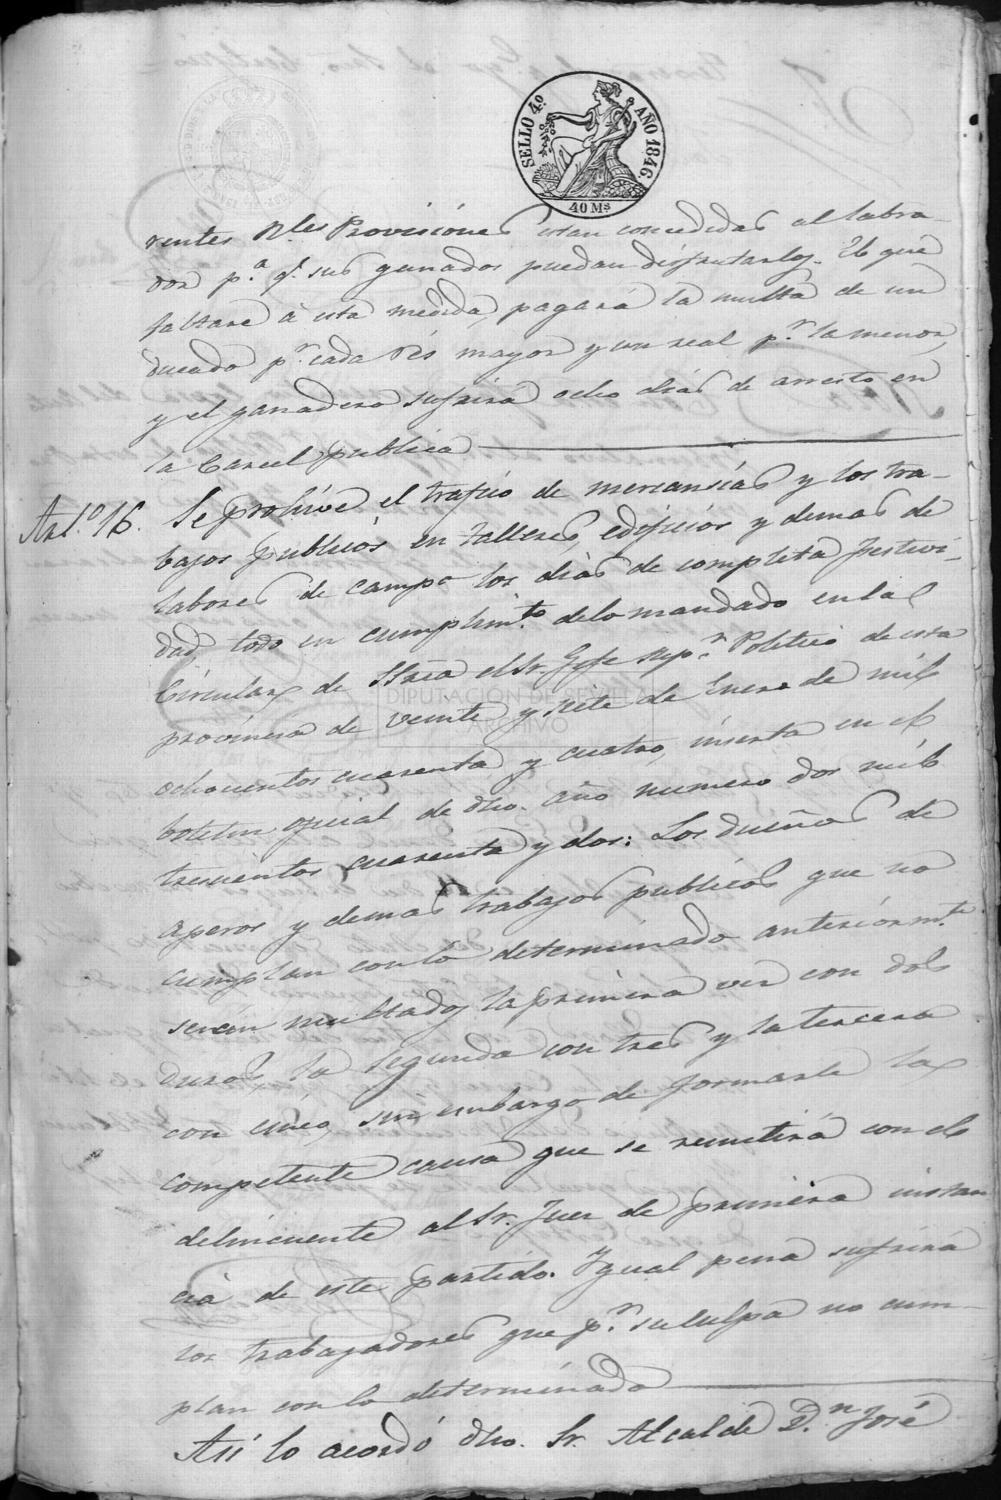 SELLO 4º. AÑO 1846.
40 Ms
rentes Rles Provisiones estan concedidas al labra-
dor p.a q.e sus ganados puedan disfrutarlos. El que
faltare à esta medida, pagará la multa de un
ducado p.r cada Rés mayor y un real p.r la menor,
y el ganadero sufrirá ocho dias de arresto en
la Carcel publica
Art.o 16. Se prohive el trafico de mercansías y los tra-
bajos publicos en talleres, edificios y demas de
labores de campo los dias de completa festivi-
dad todo en cumplim.to delo mandado en la
Circular de el Sr. Gefe sup.r Politico de esta
provincia de veinte y siete de Enero de mil
ochocientos cuarenta y cuatro, inserta en el
boletin oficial de dho. año numero dos mil
trescientos cuarenta y dos: Los dueños de
aperos y demas trabajos publicos que no
cumplan con lo determinado anteriorm.te
serán multados la primera vez con dos
duros, la segunda con tres y la tercera
con cinco, sin embargo de formarle la
competente causa que se remitirá con el
delincuente al Sr. Juez de primera instan
cia de este partido. Ygual pena sufrirá
los trabajadores que p.r su culpa no cum-
plan con lo determinado
Asi lo acordó dho. Sr. Alcalde D.n José
DIPUTACIÓN DE SEVILLA
ARCHIVO